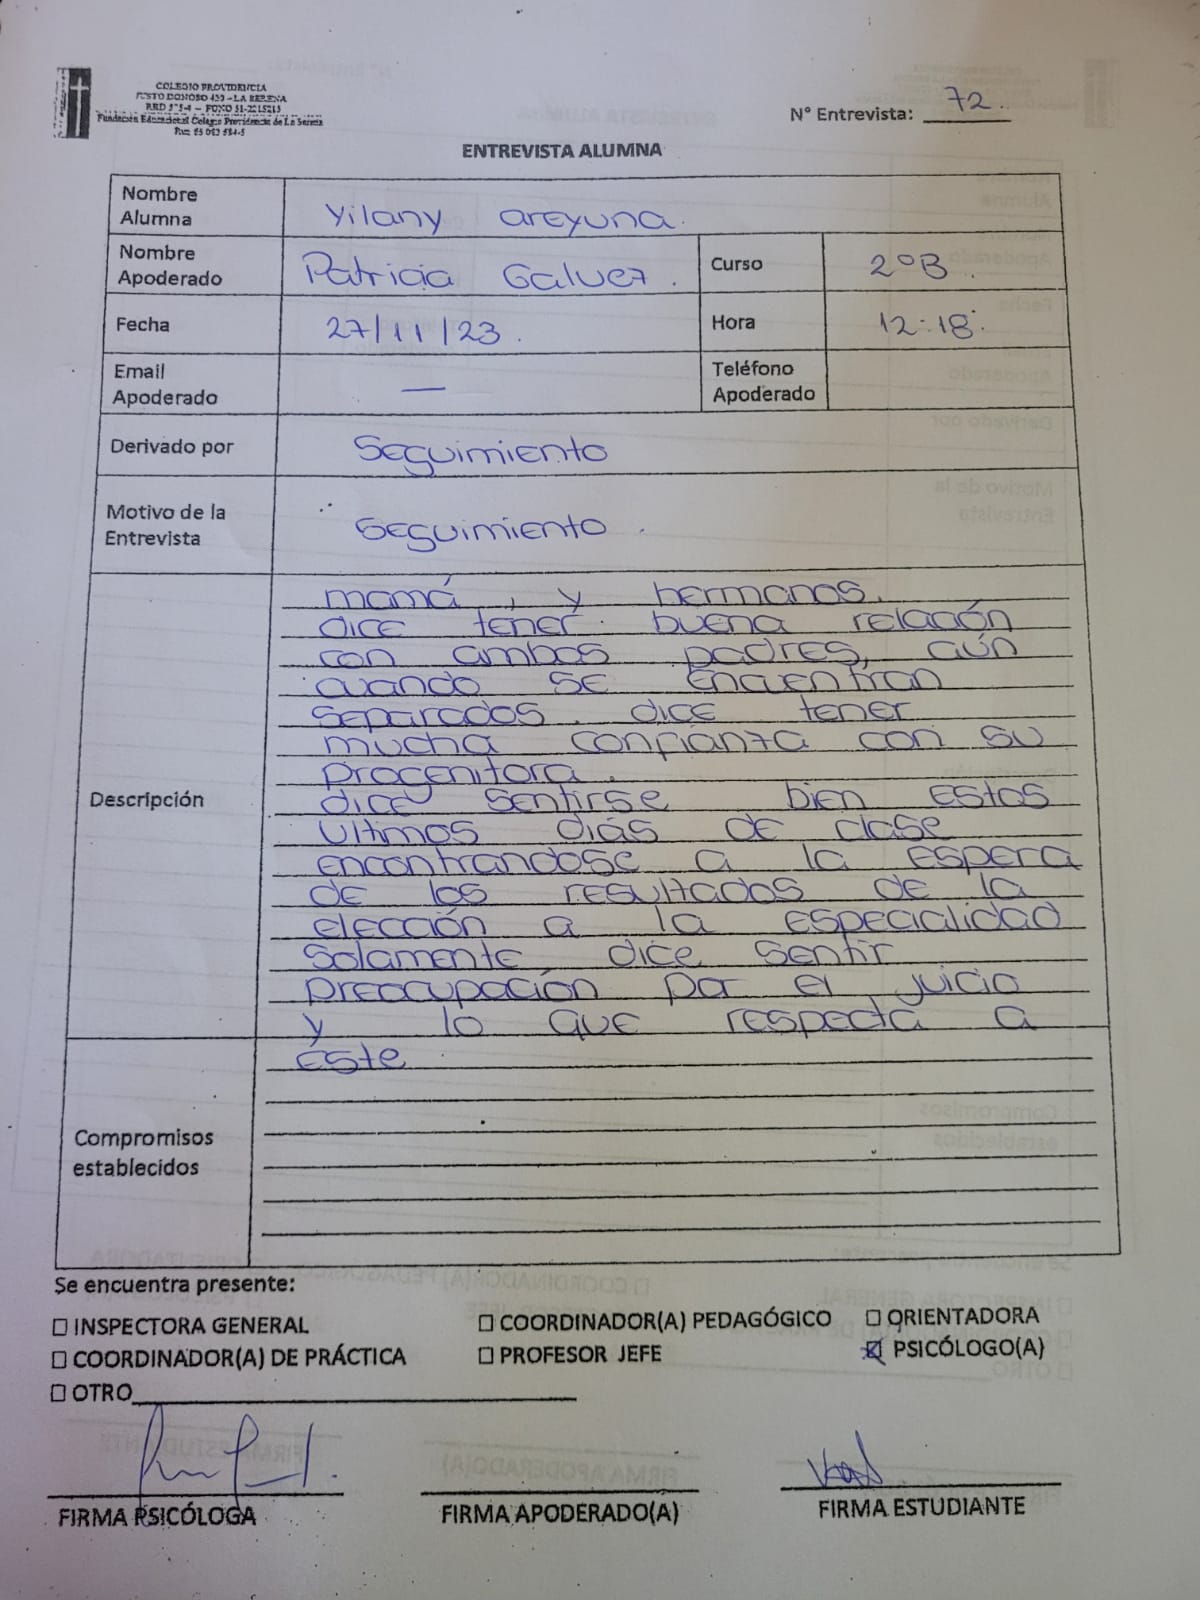 COLEGIO PROVIDENCIA
JUSTO DONOSO 420 - LA SERENA
Fundación Educacional Colegio Providencia de La Serena
N° Entrevista: 72.
ENTREVISTA ALUMNA
Nombre Alumna Yilany areyuna.
Nombre Apoderado Patricia Galvez. Curso 2°B.
Fecha 27/11/23. Hora 12:18.
Email Apoderado — Teléfono Apoderado
Derivado por Seguimiento
Motivo de la Entrevista Seguimiento.
Descripción
mamá, y hermanos.
dice tener buena relación
con ambos padres, aún
cuando se encuentran
separados. dice tener
mucha confianza con su
progenitora.
dice sentirse bien estos
ultimos días de clase
encontrandose a la espera
de los resultados de la
elección a la especialidad
solamente dice sentir
preocupación por el juicio
y lo que respecta a
este
Compromisos establecidos
Se encuentra presente:
☐ INSPECTORA GENERAL ☐ COORDINADOR(A) PEDAGÓGICO ☐ ORIENTADORA
☐ COORDINADOR(A) DE PRÁCTICA ☐ PROFESOR JEFE ☒ PSICÓLOGO(A)
☐ OTRO
FIRMA PSICÓLOGA FIRMA APODERADO(A) FIRMA ESTUDIANTE